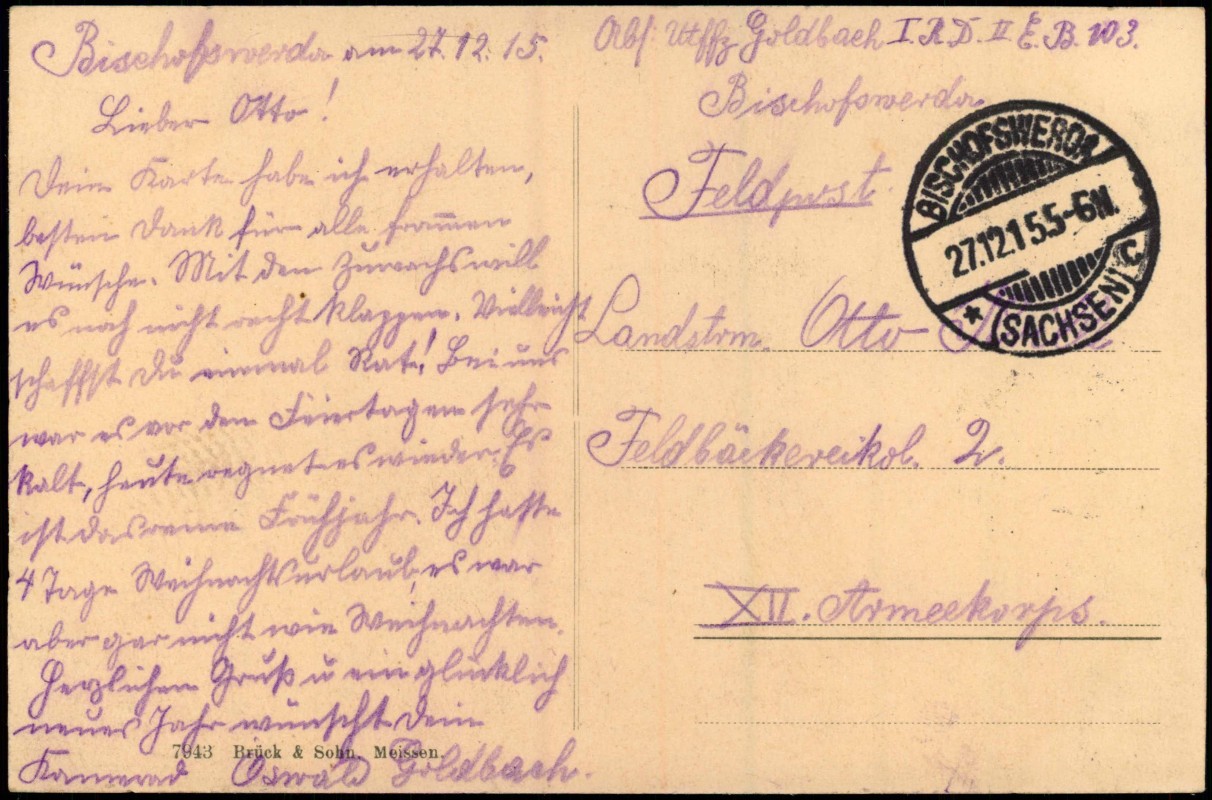 Bischofswerda am 27.12.15.
Lieber Otto!
Deine Karte habe ich erhalten,
besten Dank für alle frommen
Wünsche. Mit dem Zuwachs will
es noch nicht recht klappen. Vielleicht
schaffst Du einmal Rat! Bei uns
war es vor den Feiertagen sehr
kalt, heute regnet es wieder. Es
ist das reine Frühjahr. Ich hatte
4 Tage Weihnachtsurlaub, es war
aber gar nicht wie Weihnachten.
Herzlichen Gruß u ein glücklich
neues Jahr wünscht Dein
Kamerad Oswald Goldbach.
7943 Brück & Sohn, Meissen.
Abs: Utffz Goldbach I. R. D. II E. B. 103.
Bischofswerda
Feldpost
BISCHOFSWERDA
27.12.15.5-6N.
* (SACHSEN) C
Landstrm. Otto
Feldbäckereikol. 2.
XII. Armeekorps.